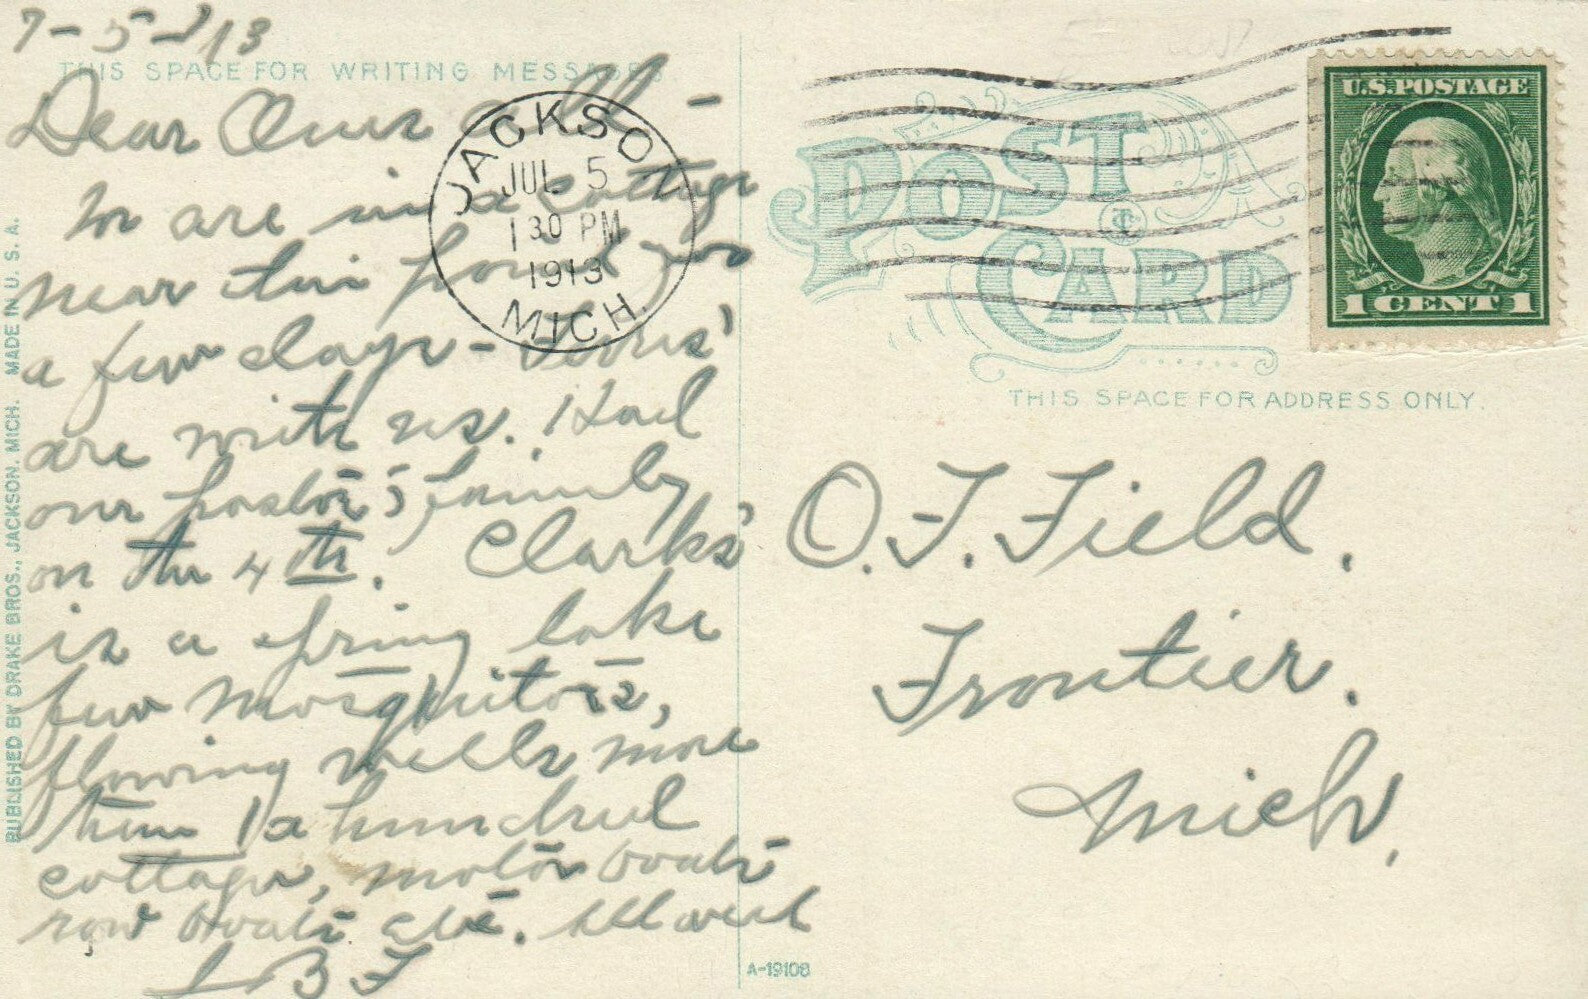 7-5-1913
THIS SPACE FOR WRITING MESSAGES.
Dear Ones All -
We are in a cottage
near this pond for
a few days -
are with us. Had
our pastor's family
on the 4th. Clarks'
is a spring lake
few mosquitoes,
flowing wells more
than a hundred
cottages, motor boats
row boats etc. All well
L B F
PUBLISHED BY DRAKE BROS., JACKSON, MICH. MADE IN U. S. A.
JACKSO
JUL 5
1 30 PM
1913
MICH.
POST CARD
U.S. POSTAGE
1 CENT 1
THIS SPACE FOR ADDRESS ONLY.
O. F. Field.
Frontier.
Mich.
A-19108